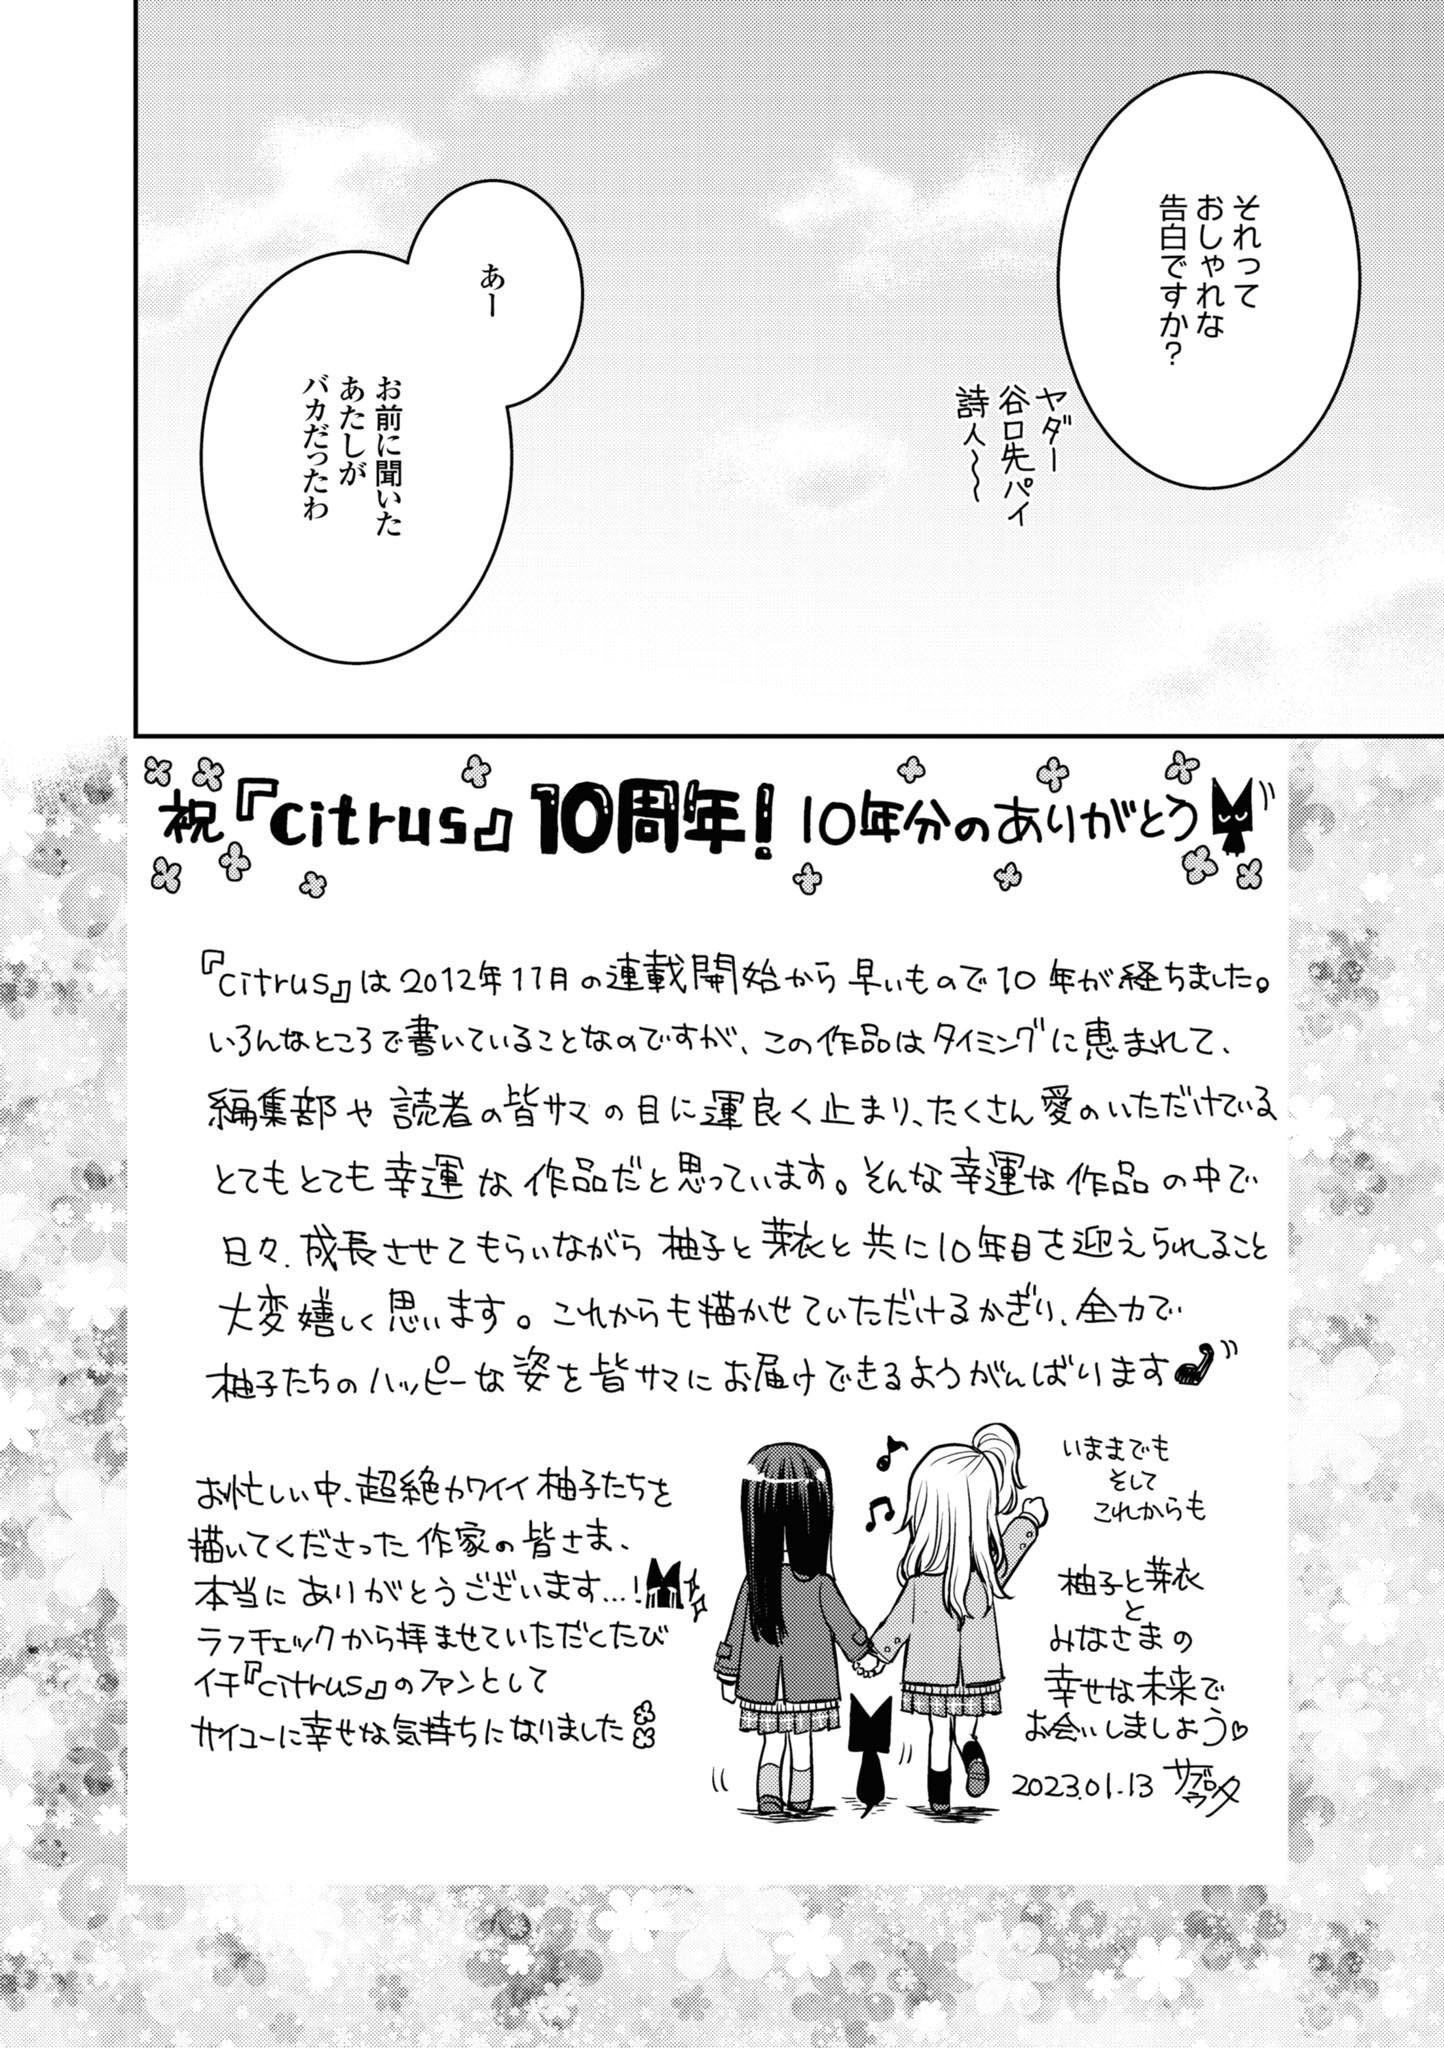 それって
おしゃれな
告白ですか？
ヤダー
谷口先パイ
詩人〜〜
あー
お前に聞いた
あたしが
バカだったわ
祝『citrus』10周年！10年分のありがとう
『citrus』は2012年11月の連載開始から早いもので10年が経ちました。
いろんなところで書いていることなのですが、この作品はタイミングに恵まれて、
編集部や読者の皆サマの目に運良く止まり、たくさん愛のいただけている
とてもとても幸運な作品だと思っています。そんな幸運な作品の中で
日々、成長させてもらいながら柚子と芽衣と共に10年目を迎えられること
大変嬉しく思います。これからも描かせていただけるかぎり、全力で
柚子たちのハッピーな姿を皆サマにお届けできるようがんばります
お忙しい中、超絶カワイイ柚子たちを
描いてくださった作家の皆さま、
本当にありがとうございます…！
ラフチェックから拝ませていただくたび
イチ『citrus』のファンとして
サイコーに幸せな気持ちになりました
いままでも
そして
これからも
柚子と芽衣
と
みなさまの
幸せな未来で
お会いしましょう♡
2023.01.13 サブロウタ